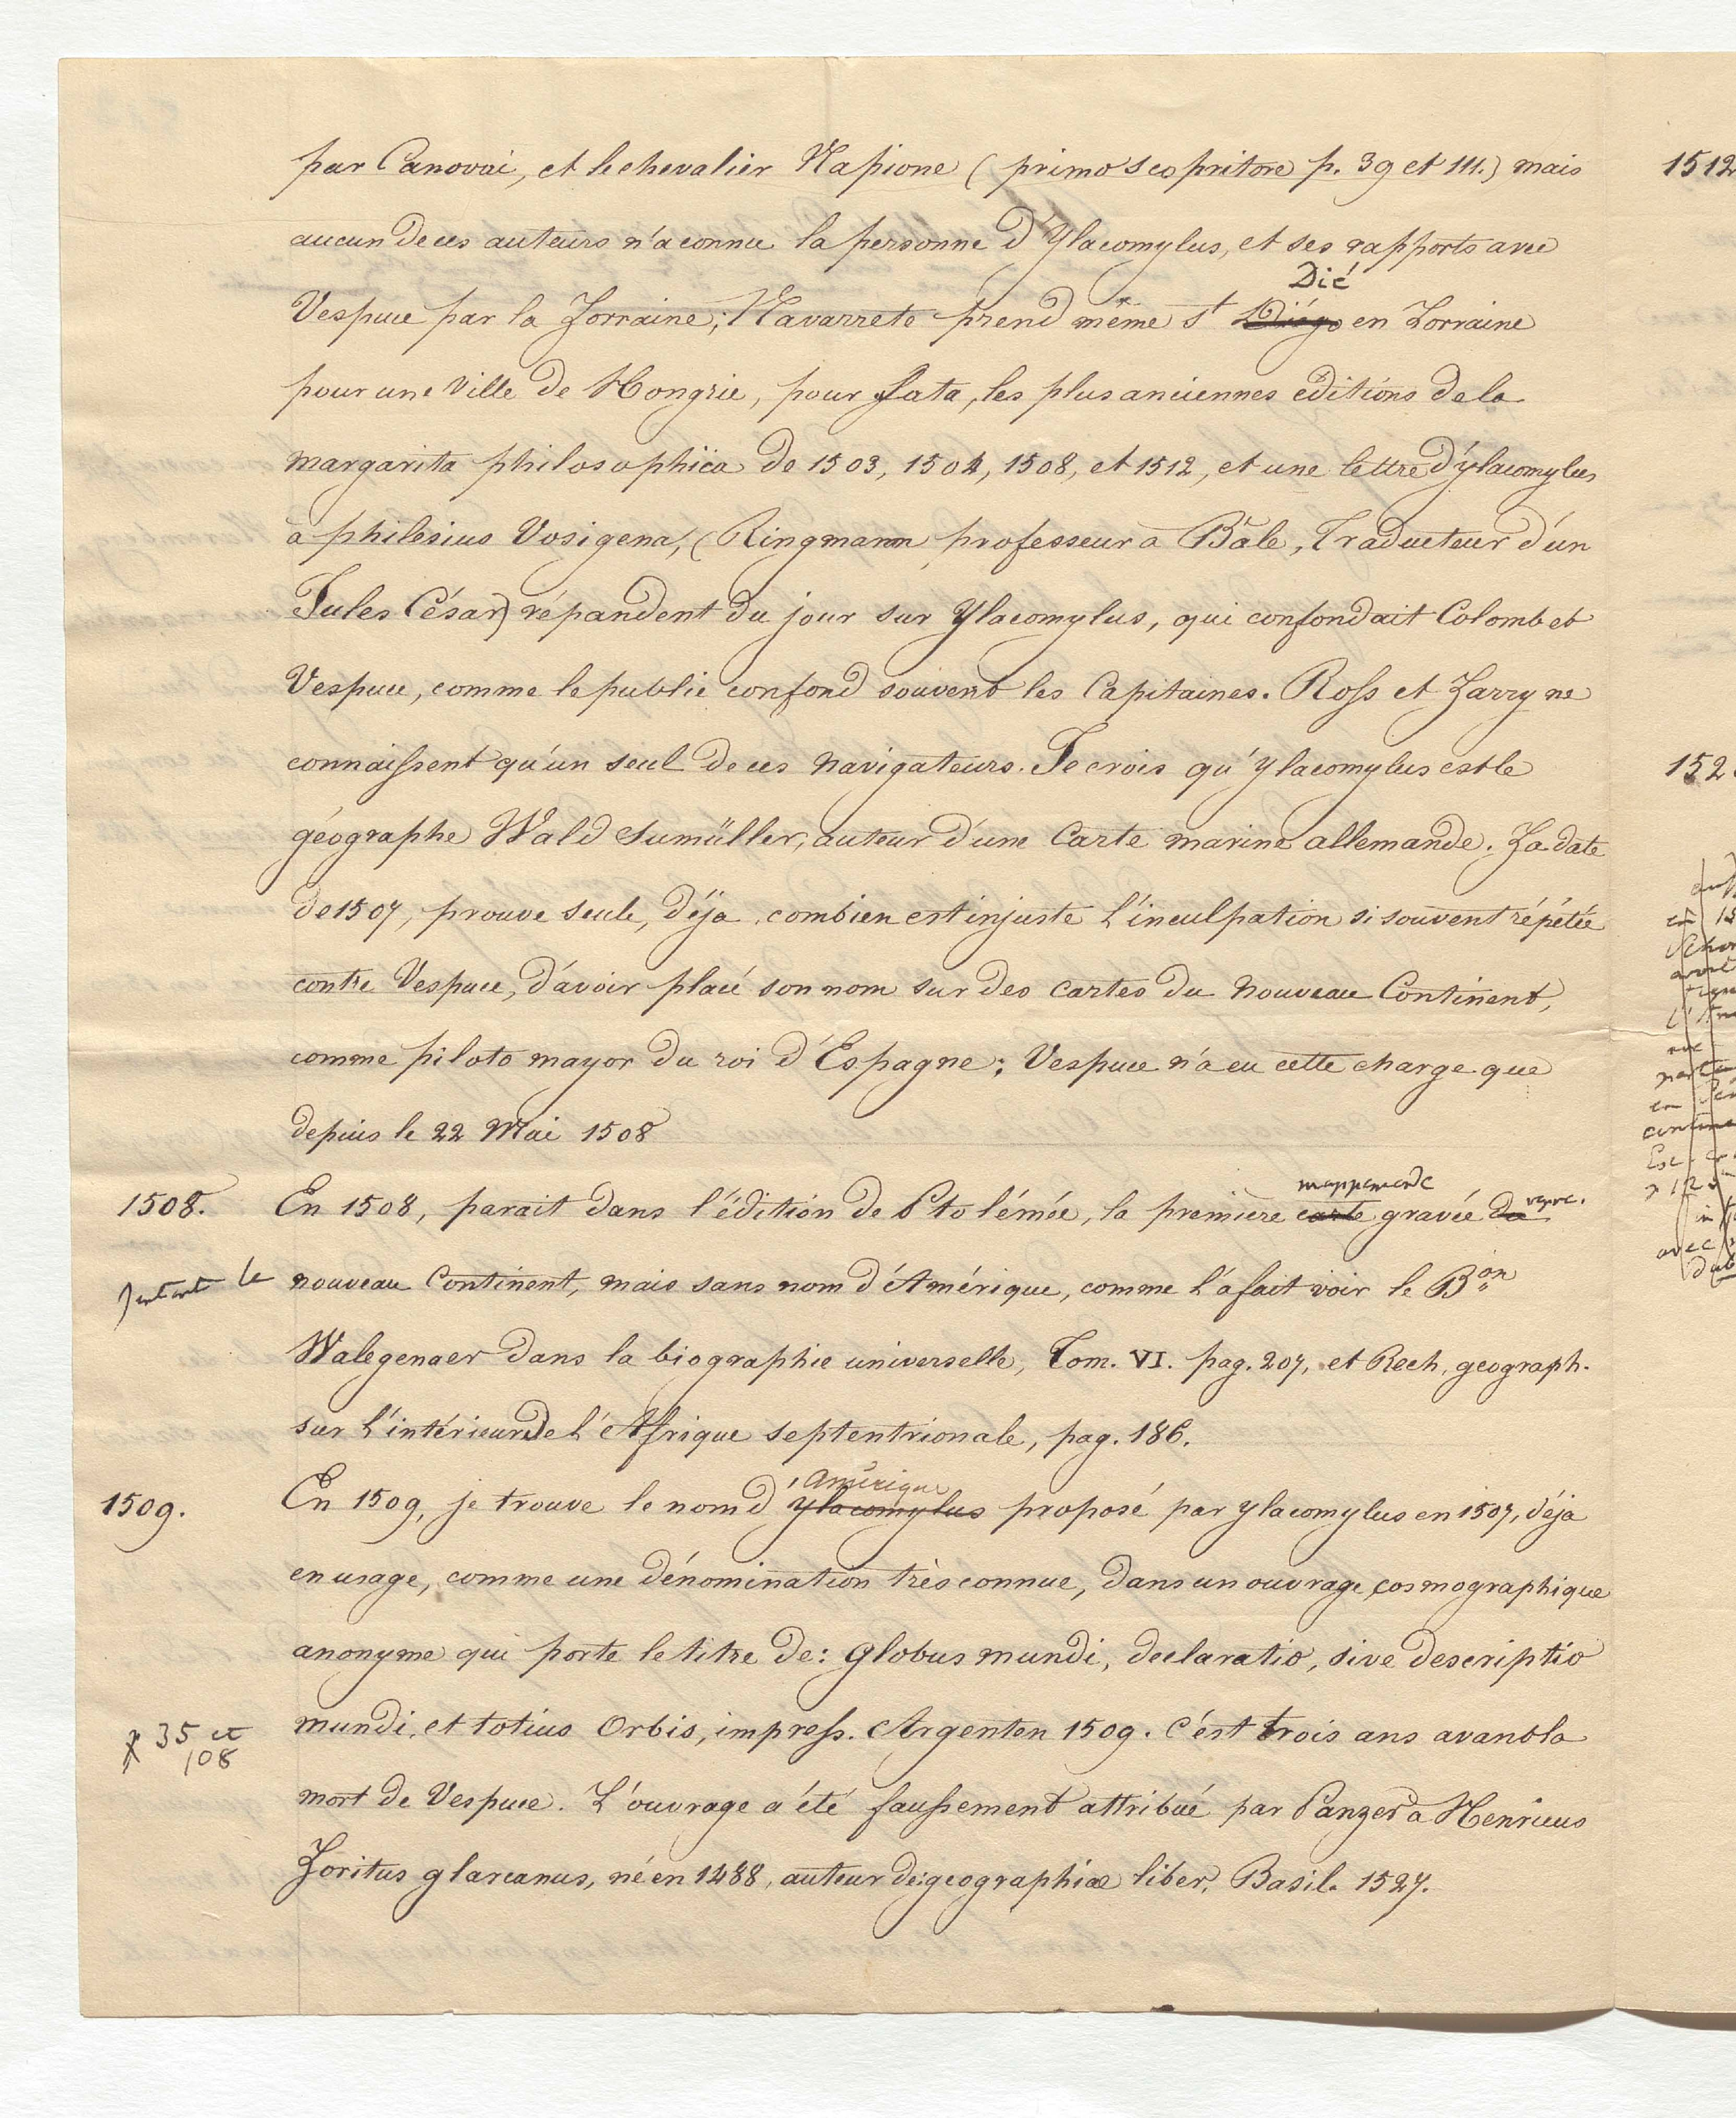 par Canovai, et le chevalier Napione (primo scopritore p. 39 et 111.) mais
aucun de ces auteurs n'a connu la personne d'Ylacomylus, et ses rapports avec
Dié
Vespuce par la Lorraine; Navarrete prend même St Diégo en Lorraine
pour une Ville de Hongrie, pour Lata, les plus anciennes editions de la
margarita philosophica de 1503, 1504, 1508, et 1512, et une lettre d'ylacomylus
à philesius Vosigena, (Ringmann professeur a Bâle, Traducteur d'un
Jules César) répandent du jour sur Ylacomylus, qui confondait Colomb et
Vespuce, comme le public confond souvent les Capitaines. Ross et Parry ne
connaissent qu'un seul de ces navigateurs. Je crois qu'ylacomylus est le
géographe Wald Sumüller, auteur d'une Carte marine allemande. La date
de 1507, prouve seule, déja combien est injuste l'inculpation si souvent répétée
contre Vespuce, d'avoir placé son nom sur des cartes du nouveau Continent,
comme piloto mayor du roi d'Espagne; Vespuce n'a eu cette charge que
depuis le 22 Mai 1508
mappemonde
1508. En 1508, parait dans l'édition de Ptolémée, la première carte gravée du
le nouveau Continent, mais sans nom d'Amérique, comme l'a fait voir le Bon
Walegenaer dans la biographie universelle, Tom. VI. pag. 207, et Rech. geograph.
sur l'intérieur de l'Afrique septentrionale, pag. 186.
Amérique
1509. En 1509, je trouve le nom d'ylacomylus proposé par ylacomylus en 1507, déja
en usage, comme une dénomination très connue, dans un ouvrage cosmographique
anonyme qui porte le titre de: globus mundi, declaratio, sive descriptio
p 35 et
108
mundi, et totius Orbis, impress. Argenten 1509. C'est trois ans avant la
mort de Vespuce. L'ouvrage a été faussement attribué par Panzer a Henricus
Loritus glareanus, né en 1488, auteur de: geographiæ liber, Basil. 1527.
1512
152